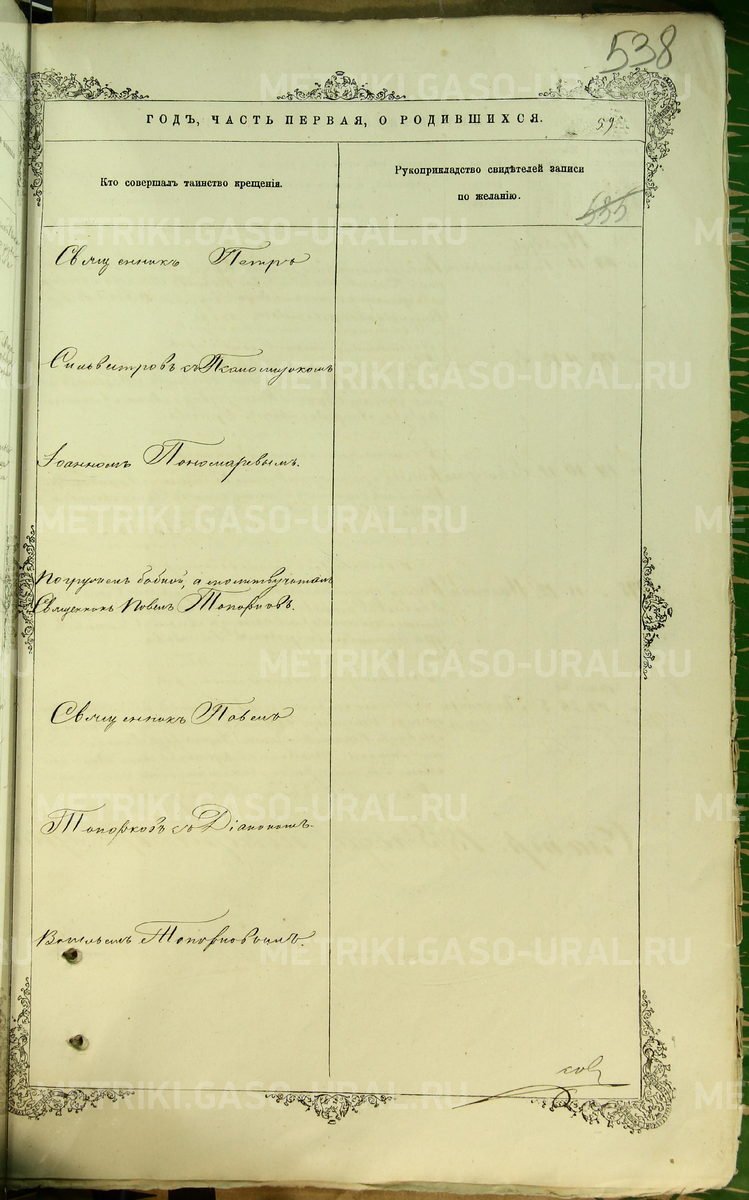 538
ГОДЪ, ЧАСТЬ ПЕРВАЯ, О РОДИВШИХСЯ.
Кто совершалъ таинство крещенія.
Рукоприкладство свидѣтелей записи
по желанію.
535
Священникъ Петръ
Сильвестровъ съ Псаломщикомъ
Іоанномъ Пономаревымъ.
Погружен бабкой, а молитвучиталъ
Священникъ Павелъ Топорковъ.
Священникъ Павелъ
Топорковъ со Діакономъ
Топорковымъ.
METRIKI.GASO-URAL.RU